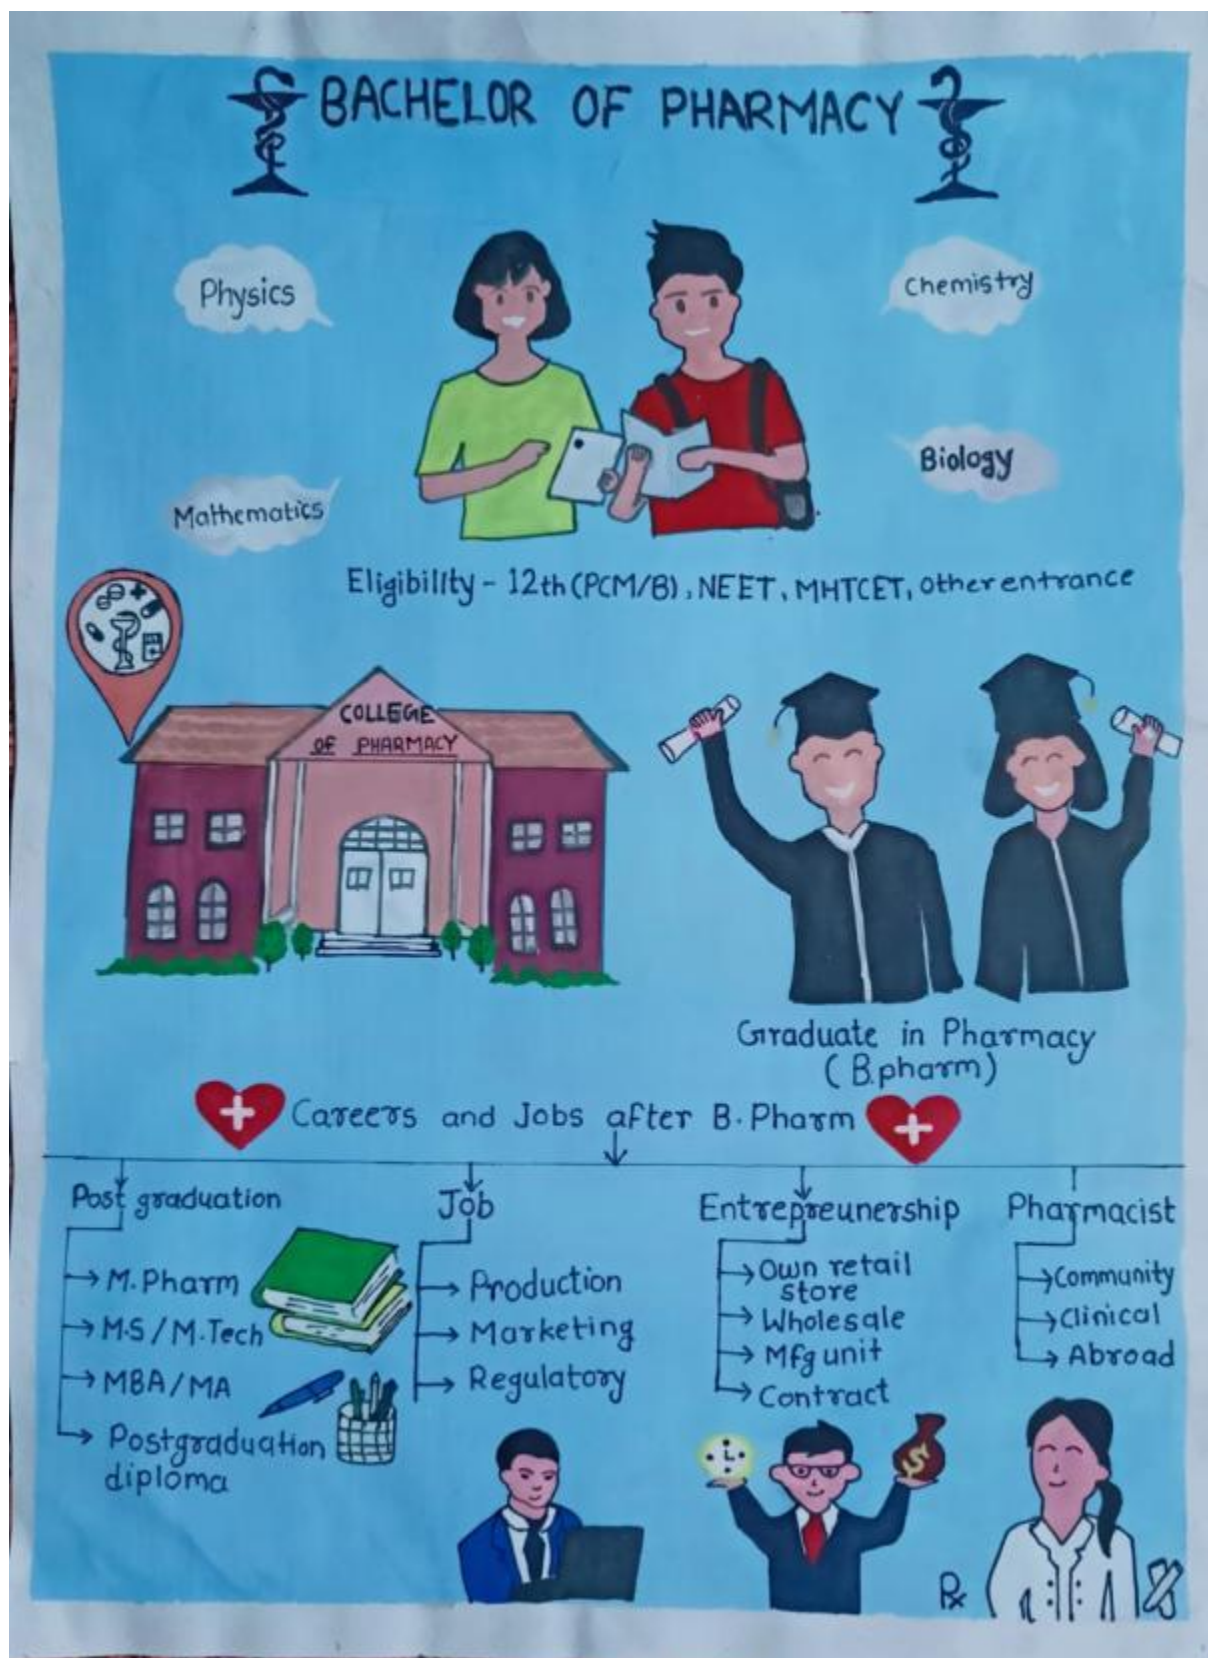 BACHELOR OF PHARMACY
Physics
Chemistry
Mathematics
Biology
Eligibility - 12th (PCM/B), NEET, MHTCET, Other entrance
COLLEGE
OF PHARMACY
Graduate in Pharmacy
(B.pharm)
Careers and Jobs after B. Pharm
Post graduation
M. Pharm
M.S / M.Tech
MBA / MA
Postgraduation
diploma
Job
Production
Marketing
Regulatory
Entrepreunership
Own retail
store
Wholesale
Mfg unit
Contract
Pharmacist
Community
Clinical
Abroad
$
Rx